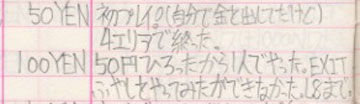 50YEN 初プレイ。(自分で金を出してだけど)
4エリアで終った。
100YEN 50円ひろったから1人でやった。EXIT
ふやしをやってみたができなかった。L8まで。